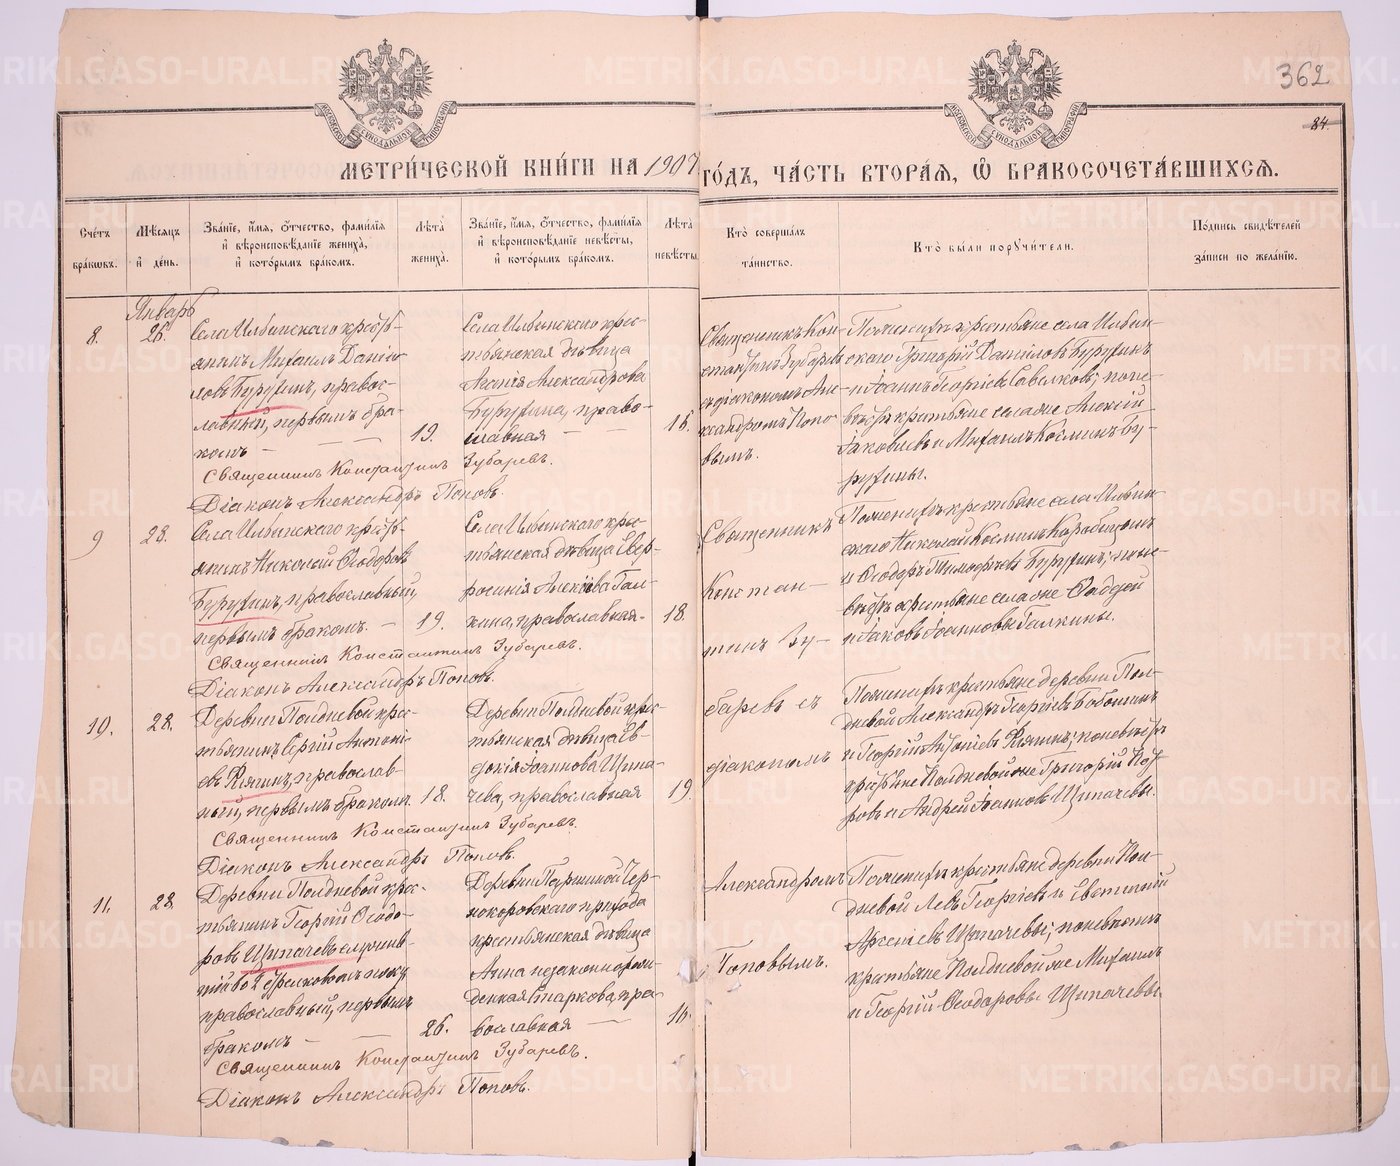 362
84.
МЕТРИ́ЧЕСКОЙ КНИ́ГИ НА 1907 ГО́ДЪ, ЧА́СТЬ ВТОРА́Я, Ѽ БРАКОСОЧЕТА́ВШИХСЯ.
Сче́тъ бра́кѡвъ.
Мѣ́сяцъ и҆ де́нь.
Зва́нїе, и҆́мя, ѻ҆́тчество, фами́лїя и҆ вѣроисповѣ́данїе жениха̀, и҆ кото́рымъ бра́комъ.
Лѣ́та жениха̀.
Зва́нїе, и҆́мя, ѻ҆́тчество, фами́лїя и҆ вѣроисповѣ́данїе невѣ́сты, и҆ кото́рымъ бра́комъ.
Лѣ́та невѣ́сты.
Кто̀ соверша́лъ та́инство.
Кто̀ бы́ли порꙋчи́тели.
По́дпись свидѣ́телей за́писи по жела́нїю.
Январь
8.
26.
Села Ильинскаго кресть-
янинъ Михаилъ Даніи-
ловъ Бурухинъ, правос-
лавный, первымъ бра-
комъ —
19.
Села Ильинскаго крес-
тьянская дѣвица
Агапія Александрова
Бурухина, право-
славная
16.
Священникъ Кон-
стантинъ Зубаревъ
съ діакономъ Але-
ксандромъ Попо-
вымъ.
По женихѣ крестьяне села Ильин-
скаго Григорій Даніиловъ Бурухинъ
и Іоаннъ Георгіевъ Савелковъ; по не-
вѣстѣ крестьяне села же Алексій
Іаковлевъ и Михаилъ Космины Бу-
рухины.
Священникъ Константинъ Зубаревъ.
Діаконъ Александръ Поповъ.
9
28.
Села Ильинскаго кресть-
янинъ Николай Ѳеодоровъ
Бурухинъ, православный,
первымъ бракомъ. —
19.
Села Ильинскаго крес-
тьянская дѣвица Евф-
росинія Алексіева Гал-
кина, православная.
18.
Священникъ
Констан-
тинъ Зу-
баревъ съ
діакономъ
Александромъ
Поповымъ.
По женихѣ крестьяне села Ильин-
скаго Николай Косминъ Карабицынъ
и Ѳеодоръ Тимоѳеевъ Бурухинъ; по не-
вѣстѣ крестьяне села же Ѳаддей
и Іаковъ Іоанновы Галкины.
Священникъ Константинъ Зубаревъ.
Діаконъ Александръ Поповъ.
10.
28.
Деревни Полдневой крес-
тьянинъ Сергій Антоні-
евъ Княжинъ, православ-
ный, первымъ бракомъ.
18.
Деревни Полдневой крес-
тьянская дѣвица Ев-
докія Іоаннова Щипа-
чева, православная
19.
По женихѣ крестьяне деревни Пол-
дневой Александръ Георгіевъ Бабошинъ
и Георгій Антоніевъ Княжинъ; по невѣстѣ
крестьяне Полдневой же Григорій
и Андрей Іоанновъ Щипачевы.
Священникъ Константинъ Зубаревъ.
Діаконъ Александръ Поповъ.
11.
28.
Деревни Полдневой крес-
тьянинъ Георгій Ѳеодо-
ровъ Щипачевъ
православный, первымъ
бракомъ
26.
Деревни Паршиной Чер-
нокоровскаго прихода
крестьянская дѣвица
Анна незаконнорож-
денная Старкова, пра-
вославная
16.
По женихѣ крестьяне деревни Пол-
дневой Левъ Георгіевъ и Евгеній
Арсеніевъ Щипачевы; по невѣстѣ
крестьяне Полдневой же Михаилъ
и Георгій Ѳеодоровы Щипачевы.
Священникъ Константинъ Зубаревъ.
Діаконъ Александръ Поповъ.